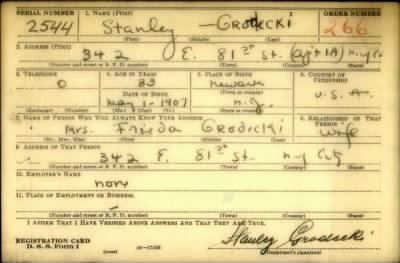 SERIAL NUMBER 1. NAME (Print) ORDER NUMBER
2544 Stanley — GRODECKI 266
(First) (Middle) (Last)
2. ADDRESS (Print)
342 E. 81st St. (Apt 1A) N.Y.C.
(Number and street or R. F. D. number) (Town) (County) (State)
3. TELEPHONE 4. AGE IN YEARS 5. PLACE OF BIRTH 6. COUNTRY OF CITIZENSHIP
0 33 Newark
DATE OF BIRTH
May 1-1907 N.J. U.S.A.
(Exchange) (Number) (Mo.) (Day) (Yr.) (Town) (County)
7. NAME OF PERSON WHO WILL ALWAYS KNOW YOUR ADDRESS 8. RELATIONSHIP OF THAT PERSON
Mrs. Frieda GRODECKI Wife
(Mr., Mrs., Miss) (First) (Middle) (Last)
9. ADDRESS OF THAT PERSON
342 E. 81st St. N.Y City
(Number and street or R. F. D. number) (Town) (County) (State)
10. EMPLOYER'S NAME
none
11. PLACE OF EMPLOYMENT OR BUSINESS
(Number and street or R. F. D. number) (Town) (County) (State)
I AFFIRM THAT I HAVE VERIFIED ABOVE ANSWERS AND THAT THEY ARE TRUE.
REGISTRATION CARD Stanley Grodecki
D. S. S. Form 1 (over) 16—17105 (Registrant's signature)